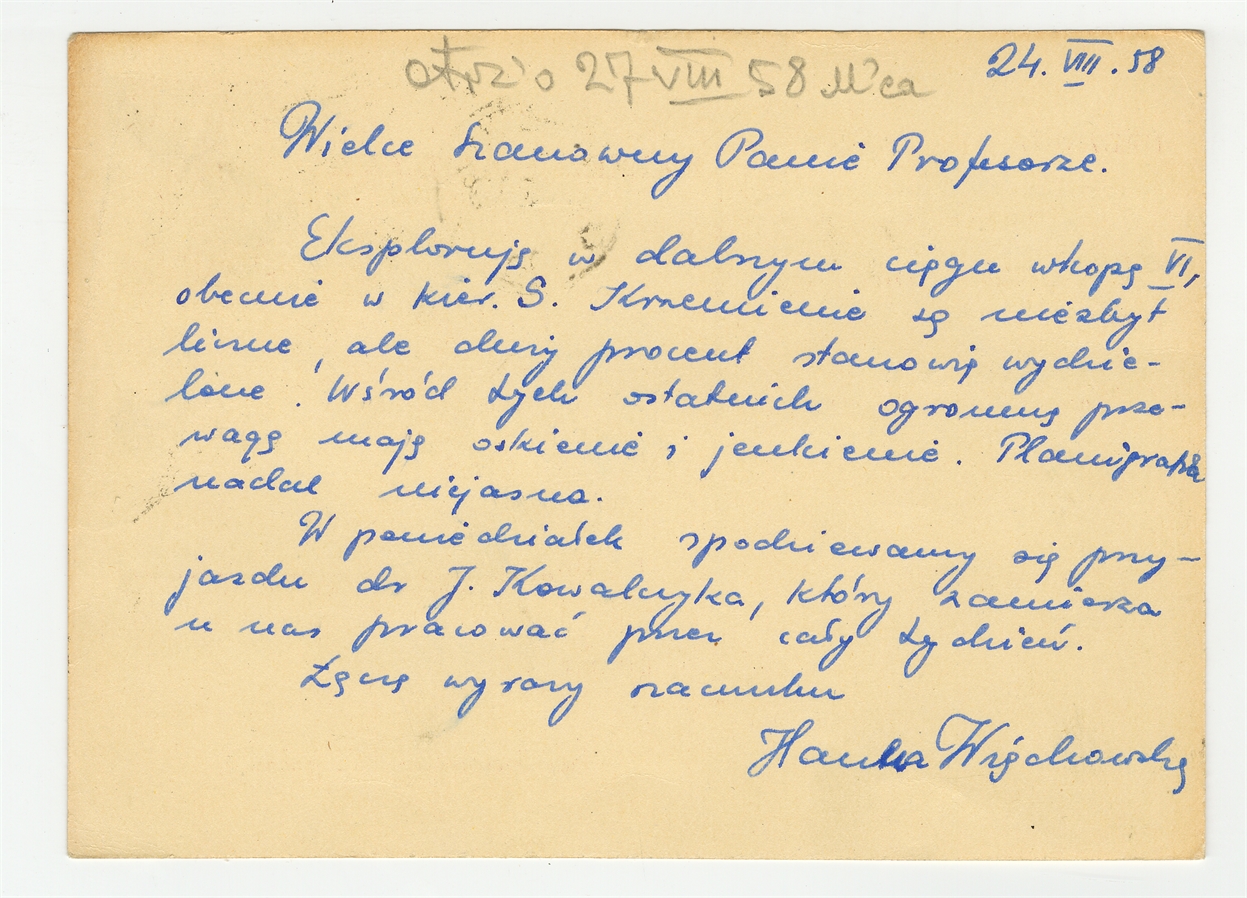 24. VIII. 58
27 VIII 58
Wielce Szanowny Panie Profesorze.
Eksploruję w dalszym ciągu wkopę VI,
obecnie w kier. S. Krzemienie są niezbyt
liczne, ale duży procent stanowią wydzie-
lone. Wśród tych ostatnich ogromną prze-
wagę mają oskienie i jenkienie. Planigrafia
nadal niejasna.
W poniedziałek spodziewamy się przy-
jazdu dr J. Kowalczyka, który zamierza
u nas pracować przez cały tydzień.
Łączę wyrazy szacunku
Hanka Więckowska